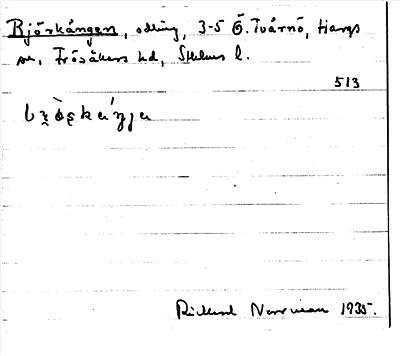 Björkängen, odling, 3-5 Ö. Tvärnö, Hargs
sn, Frösåkers hd, Sthlms l.
513
Rickard Norrman 1935.